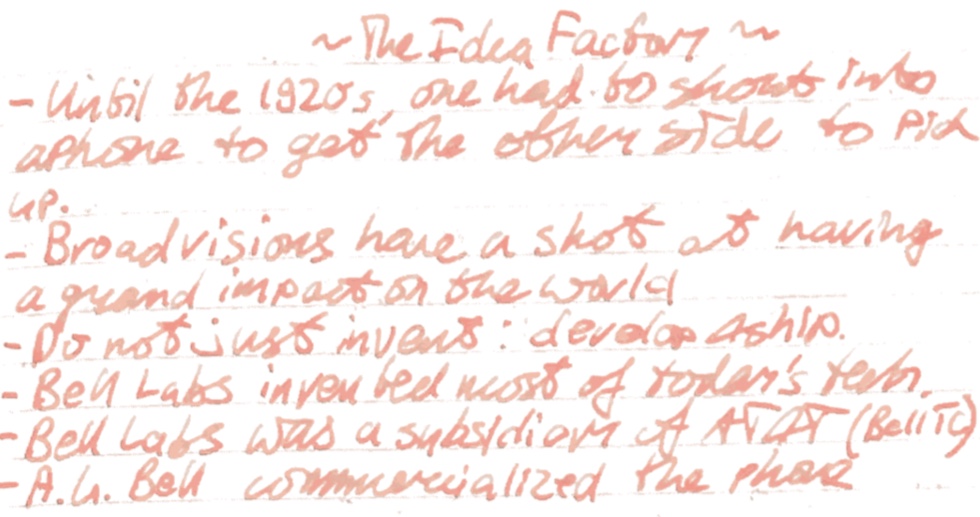 ~ The Idea Factory ~
- Until the 1920's, one had to shout into
a phone to get the other side to pick
up.
- Broad visions have a shot at having
a grand impact on the world
- Do not just invent: develop & ship.
- Bell Labs invented most of today's tech.
- Bell Labs was a subsidiary of AT&T (Bell TC)
- A.G. Bell commercialized the phone